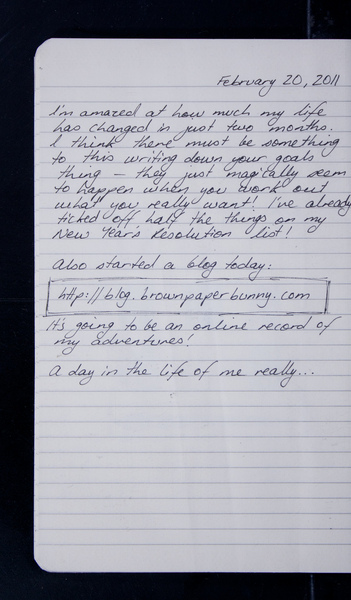 February 20, 2011
I'm amazed at how much my life
has changed in just two months.
I think there must be something
to this writing down your goals
thing – they just magically seem
to happen when you work out
what you really want! I've already
ticked off half the things on my
New Year's Resolution list!
Also started a blog today:
http://blog.brownpaperbunny.com
It's going to be an online record of
my adventures!
A day in the life of me really...